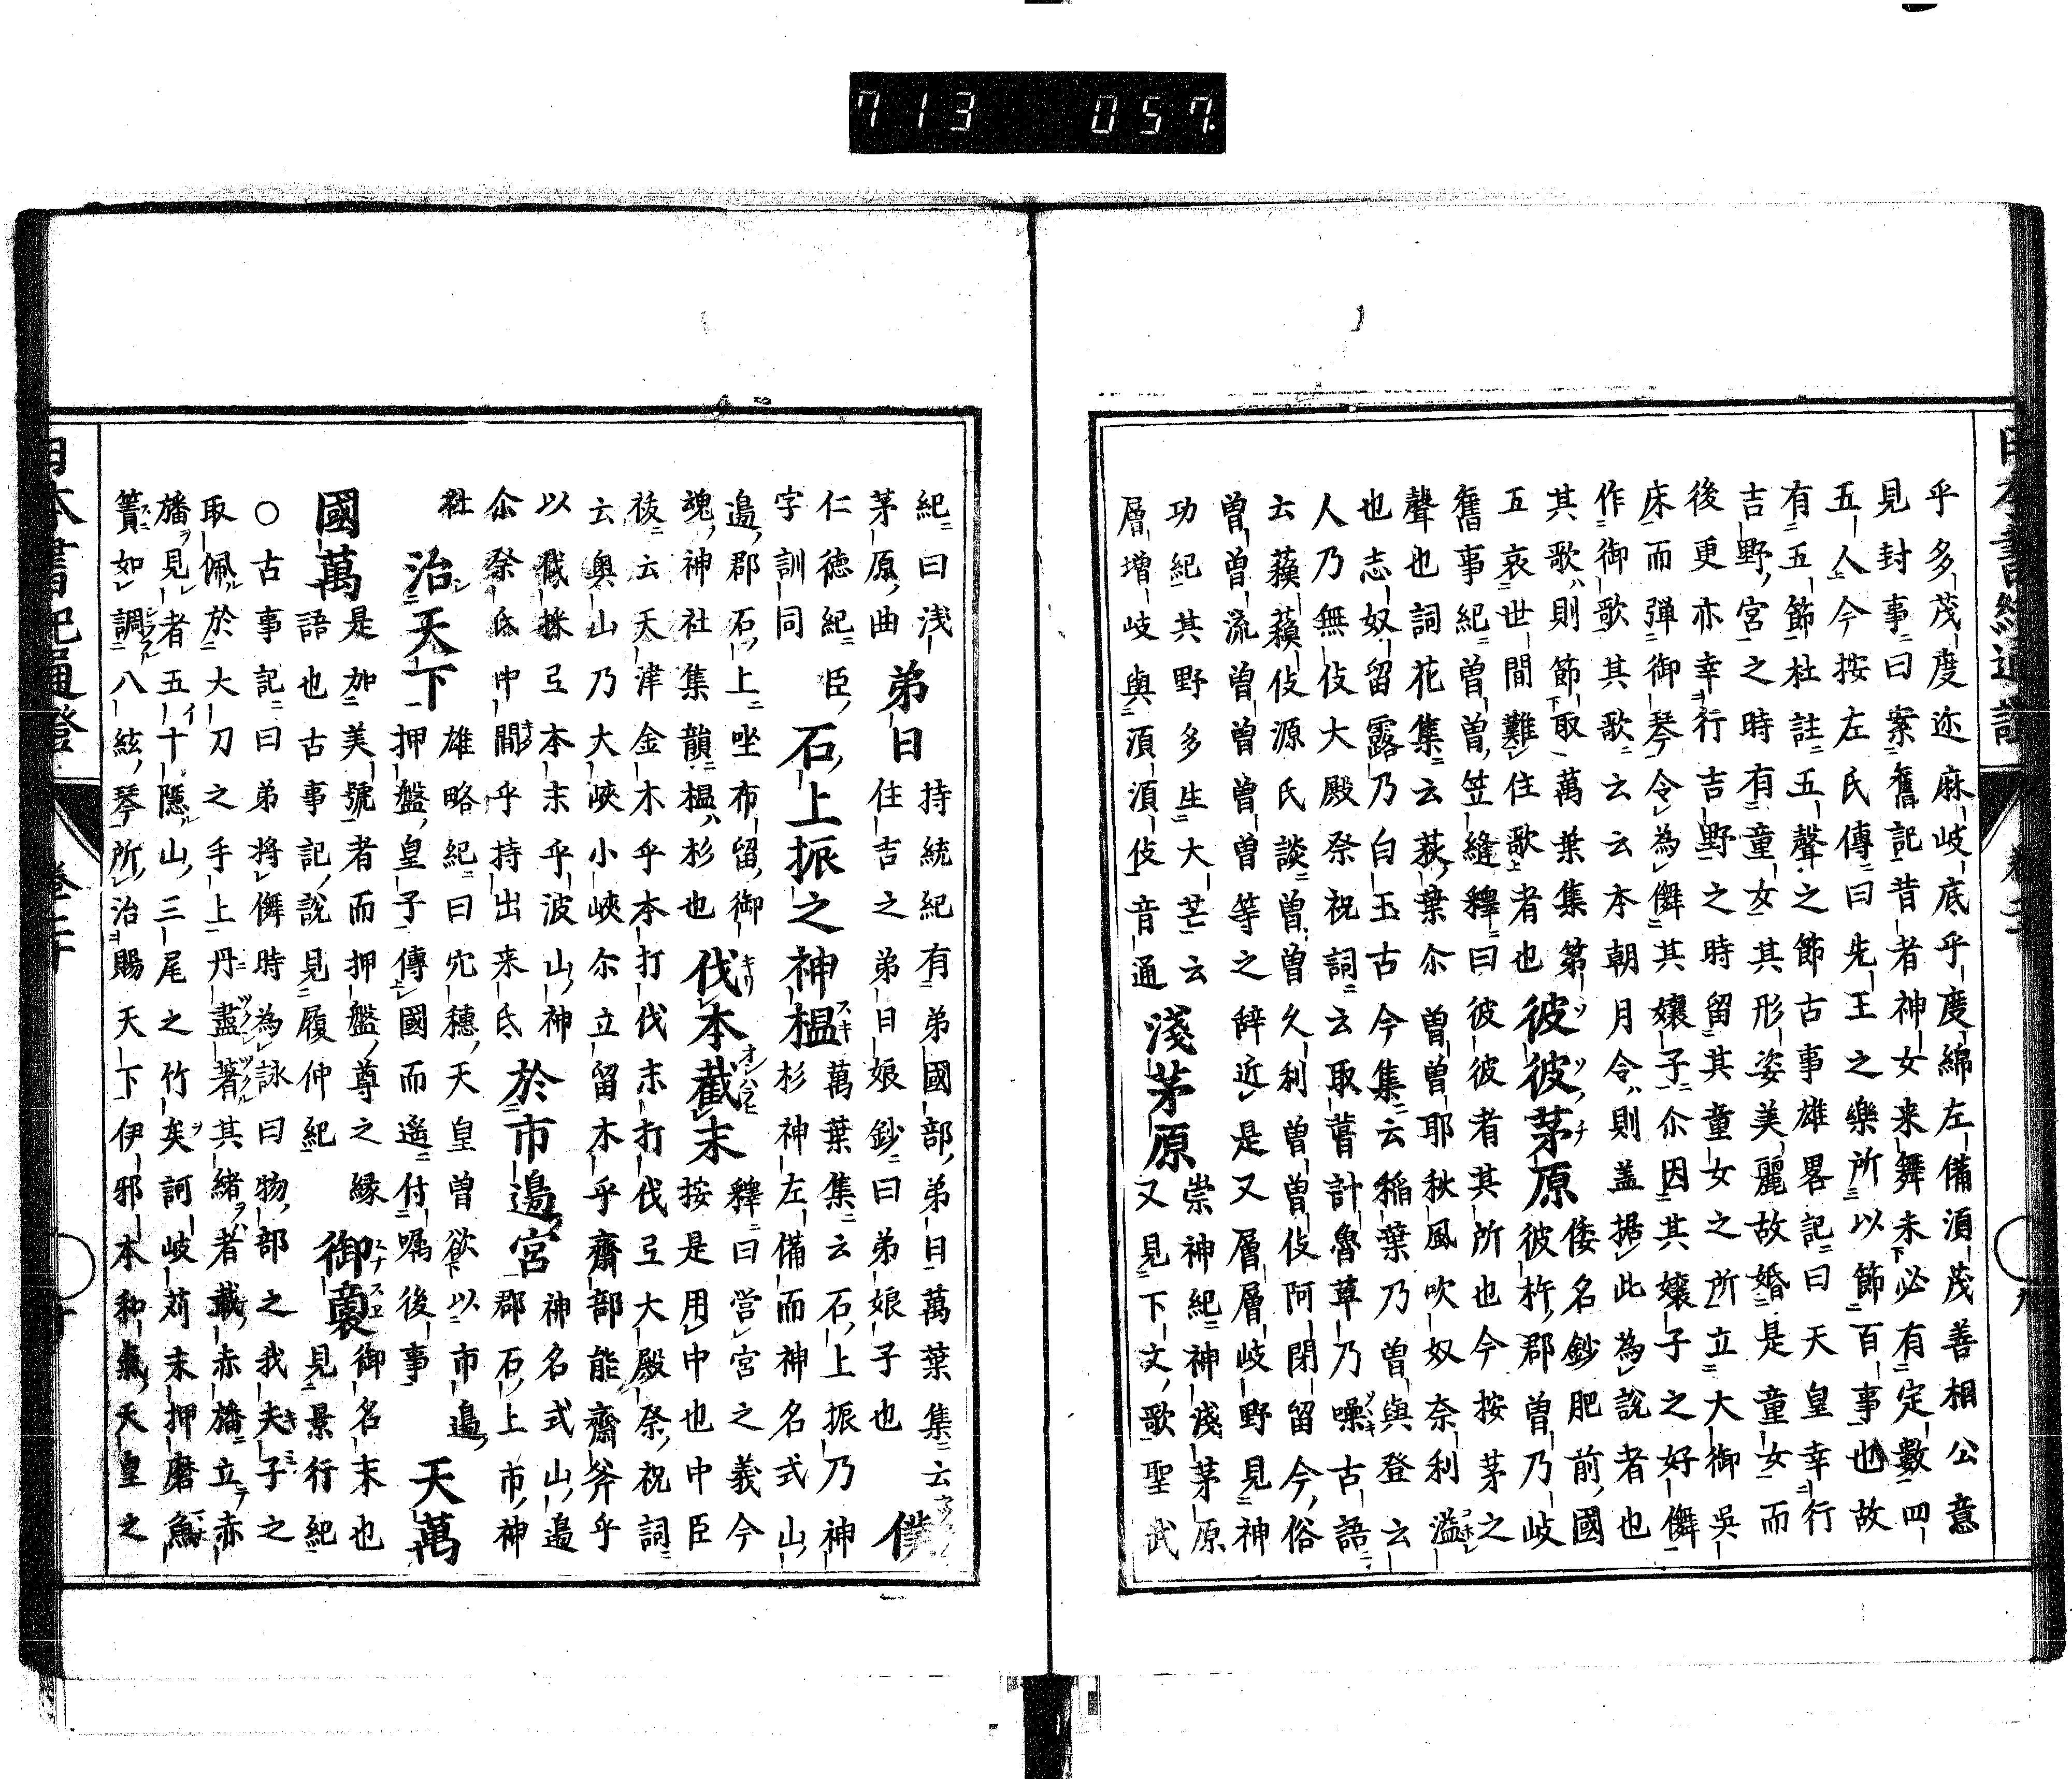 713 057.
乎多茂度迩麻岐底乎度綿左備湏茂善相公意
見封事曰案舊記昔者神女来舞未必有定數四
五人今按左氏傳曰先王之樂所以節百事也故
有五節杜註五聲之節古事雄畧記曰天皇幸行
吉野宮之時有童女其形姿美麗故婚是童女而
後更亦幸行吉野之時留其童女之所立大御吳
床而弾御琴令為儛其孃子尒因其孃子之好儛
作御歌其歌云云本朝月令則盖据此為說者也
其歌則節取萬葉集第
五哀世間難住歌者也
彼彼茅原
倭名鈔肥前國
彼杵郡曽乃岐
舊事紀曽曽笠縫釋曰彼彼者其所也今按茅之
聲也詞花集云荻葉尒曽曽耶秋風吹奴奈利溢
也志奴留露乃白玉古今集云稲葉乃曽與登云
人乃無伎大殿祭祝詞云取葺計魯草乃噪古語
云蘓蘓伎源氏談曽曽久利曽曽伎阿閉留今俗
曽曽流曽曽曽曽等之辞近是又層層岐野見神
功紀其野多生大芒云
層増岐與湏湏伎音通
淺茅原
崇神紀神淺茅原
又見下文歌聖武
紀曰浅
茅原曲
弟日
持統紀有弟國部弟日萬葉集云
住吉之弟日娘鈔曰弟娘子也
僕
仁徳紀臣
字訓同
石上振之神榲
萬葉集云石上振乃神
杉神左備而神名式山
邉郡石上坐布留御
魂神社集韻榲杉也
伐本截末
釋曰営宮之義今
按是用中也中臣
祓云天津金木乎本打伐末打伐弖大殿祭祝詞
云奥山乃大峽小峽尓立留木乎齋部能齋斧乎
以伐採弖本末乎波山神
尒祭氐中間乎持出来氐
於市邉宮
神名式山邉
郡石上市神
社
治天下
雄略紀曰穴穂天皇曽欲以市邉
押盤皇子傳國而遙付嘱後事
天萬
國萬
是加美號者而押盤尊之縁
語也古事記說見履仲紀
御裔
御名末也
見景行紀
○古事記曰弟将儛時為詠曰物部之我夫子之
取佩於大刀之手上丹盡著其緒者載赤旛立赤
旛見者五十隱山三尾之竹矣訶岐苅末押磨魚
簀如調八絃琴所治賜天下伊邪本和氣天皇之